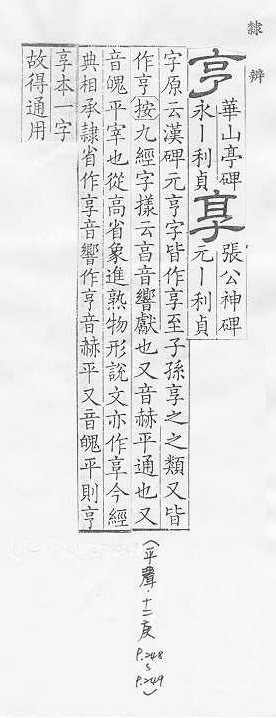 隸辨
亨 華山亭碑
永丨利貞
享 張公神碑
元丨利貞
字原云漢碑元亨字皆作享至子孫享之之類又皆
作亨按九經字樣云亯音響獻也又音赫平通也又
音魄平宰也從高省象進熟物形說文亦作亯今經
典相承隸省作享音響作亨音赫平又音魄平則亨
享本一字
故得通用
(平聲·十二庚
P.248
~
P.249)